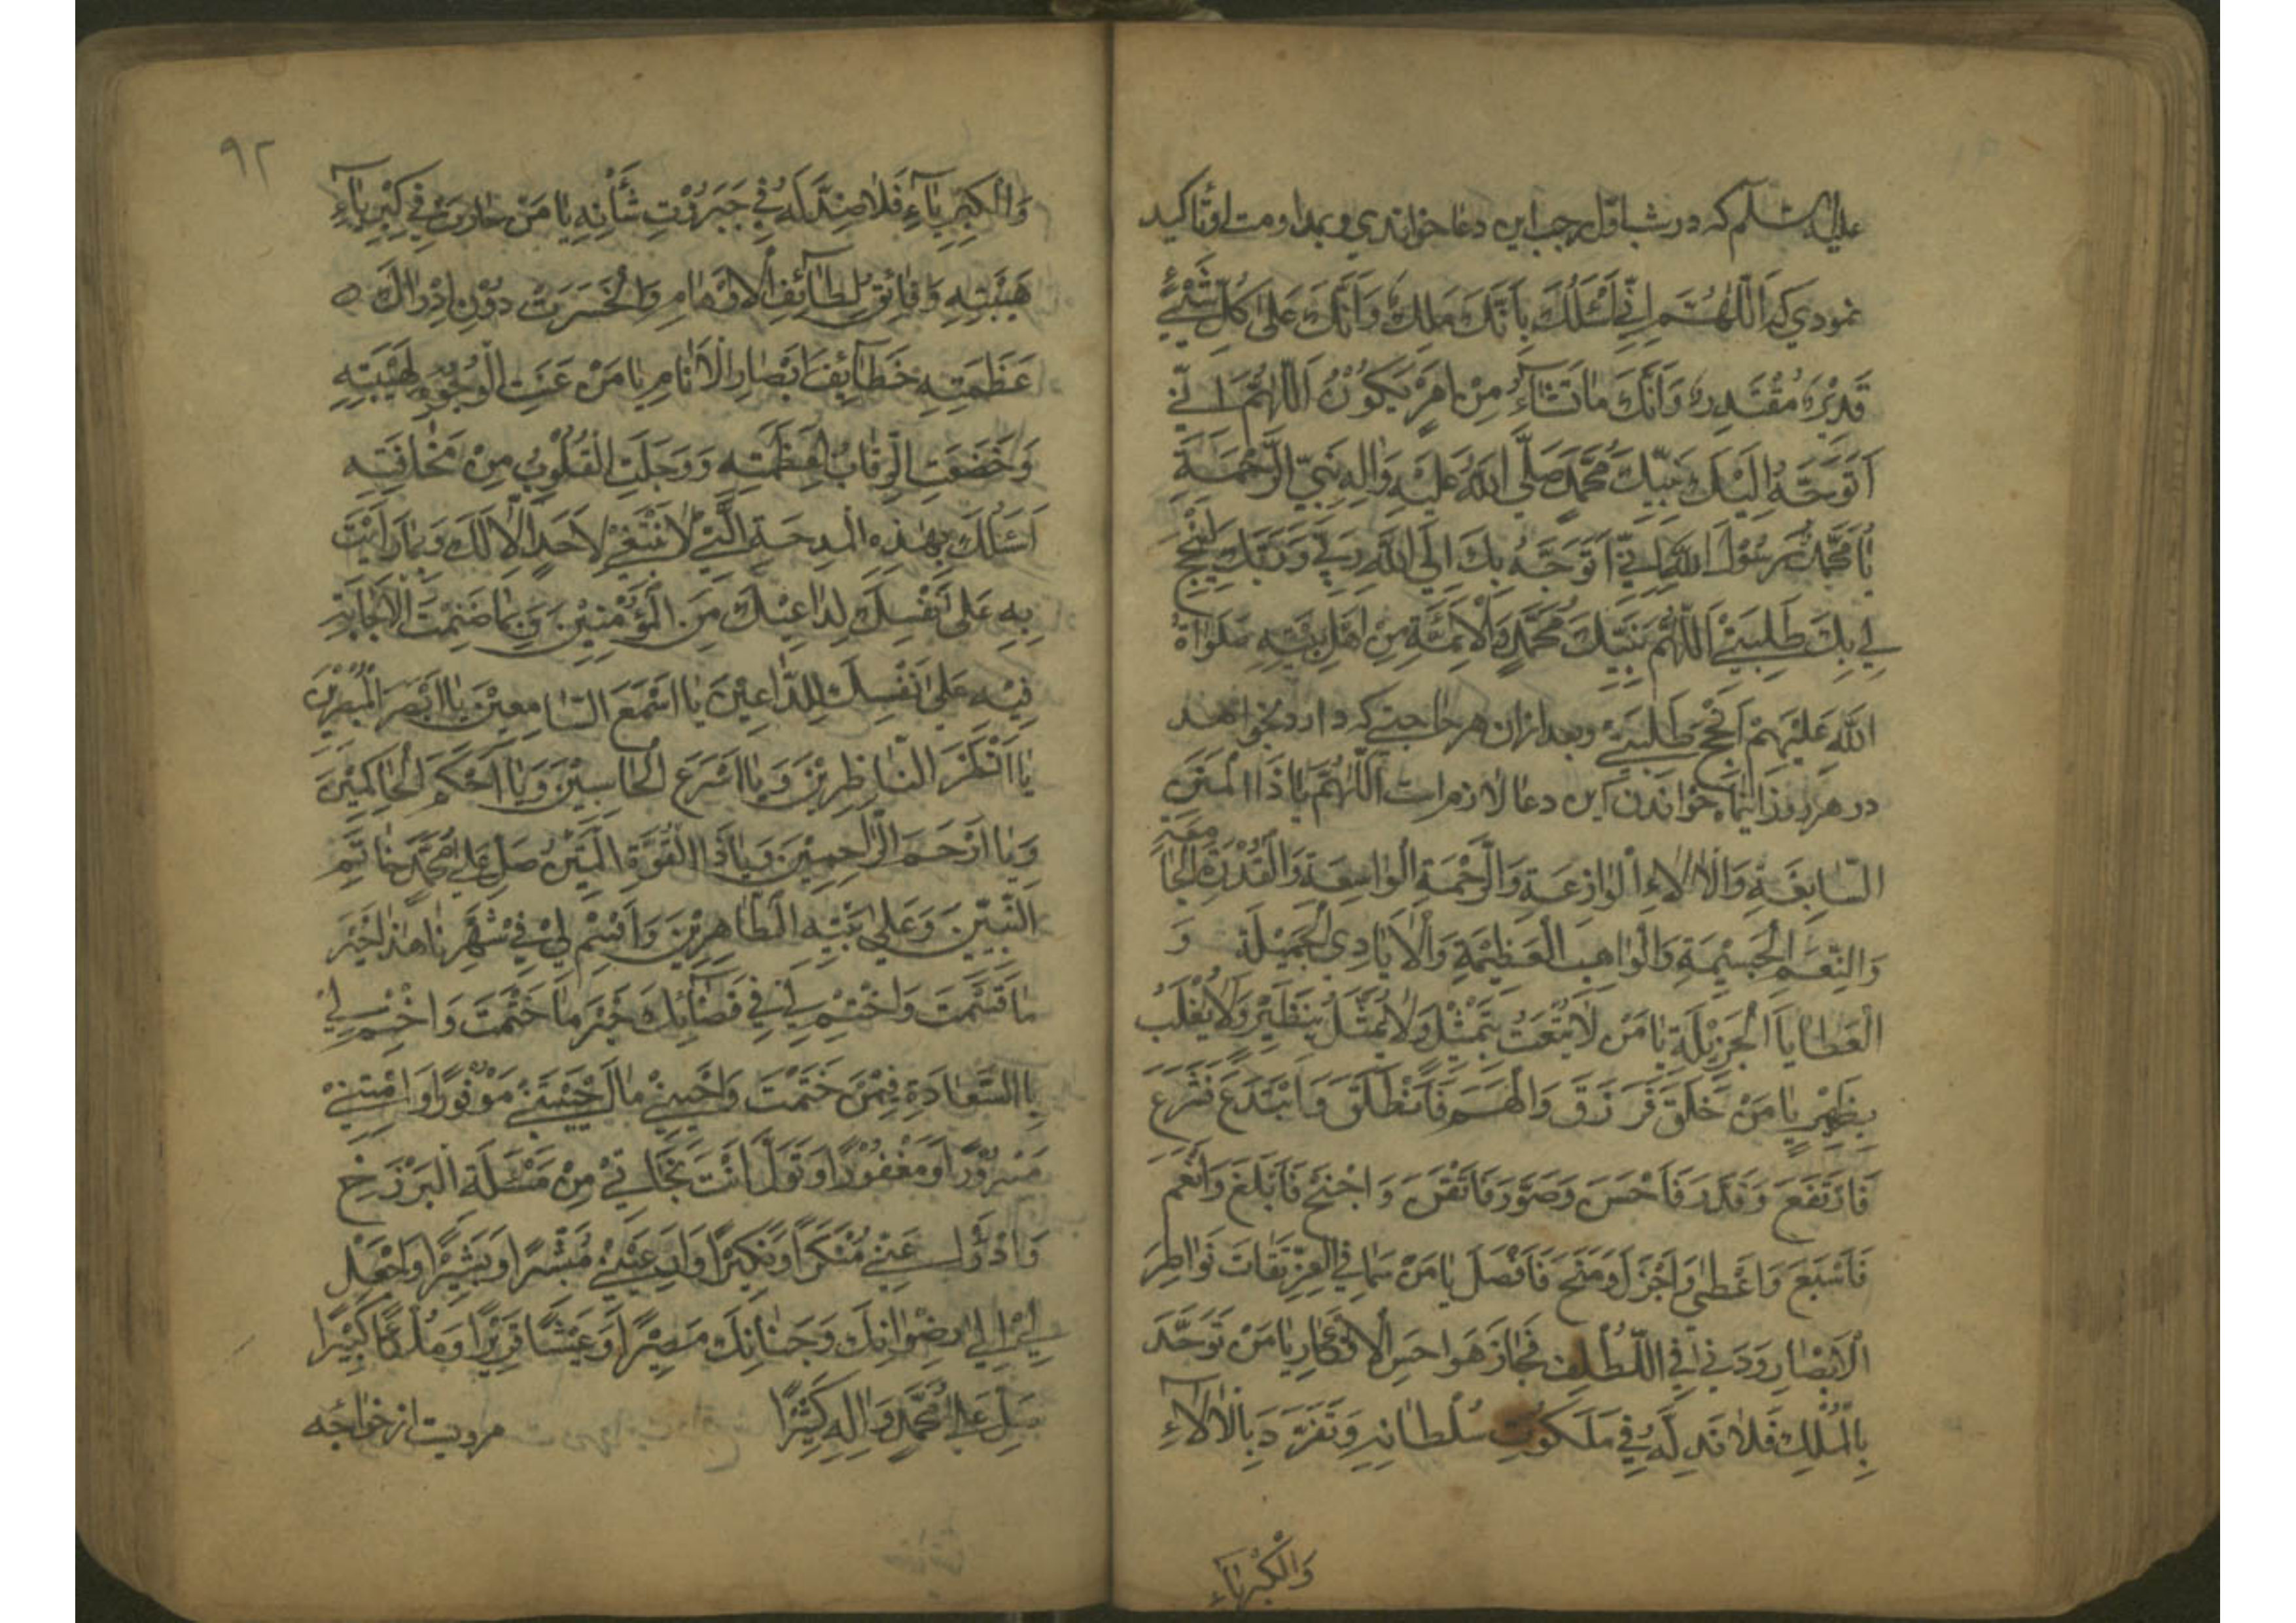 عليه السلام که در شب اوّل رجب این دعا خواندی و بمداومت او تاکید
نمودی که اَللّٰهُمَّ اِنِّي اَسْئَلُكَ بِاَنَّكَ مَلِكٌ وَاَنَّكَ عَلىٰ كُلِّ شَيْءٍ
قَدِيْرٌ مُقْتَدِرٌ وَاَنَّكَ مَا تَشَآءُ مِنْ اَمْرٍ يَكُوْنُ اَللّٰهُمَّ اِنِّي
اَتَوَجَّهُ اِلَيْكَ بِنَبِيِّكَ مُحَمَّدٍ صَلَّى اللهُ عَلَيْهِ وَاٰلِهِ نَبِيِّ الرَّحْمَةِ
يَا مُحَمَّدُ يَا رَسُوْلَ اللهِ اِنِّي اَتَوَجَّهُ بِكَ اِلَى اللهِ رَبِّي وَرَبِّكَ لِيُنْجِحَ
لِي بِكَ طَلِبَتِيْ اَللّٰهُمَّ بِنَبِيِّكَ مُحَمَّدٍ وَالْاَئِمَّةِ مِنْ اَهْلِ بَيْتِهِ صَلَوَاةُ
اللهِ عَلَيْهِمْ اَنْجِحْ طَلِبَتِيْ وبعد ازان هر حاجتی که دارد بخواهد
در هر روز ازین ماه خواندن این دعا لازم است اَللّٰهُمَّ يَا ذَا الْمِنَنِ
السَّابِغَةِ وَالْاٰلَاءِ الْوَازِعَةِ وَالرَّحْمَةِ الْوَاسِعَةِ وَالْقُدْرَةِ الْجَامِعَةِ
وَالنِّعَمِ الْجَسِيْمَةِ وَالْمَوَاهِبِ الْعَظِيْمَةِ وَالْاَيَادِي الْجَمِيْلَةِ وَ
الْعَطَايَا الْجَزِيْلَةِ يَا مَنْ لَا يُنْعَتُ بِتَمْثِيْلٍ وَلَا يُمَثَّلُ بِنَظِيْرٍ وَلَا يُغْلَبُ
بِظَهِيْرٍ يَا مَنْ خَلَقَ فَرَزَقَ وَاَلْهَمَ فَاَنْطَقَ وَابْتَدَعَ فَشَرَعَ
فَارْتَفَعَ وَقَدَّرَ فَاَحْسَنَ وَصَوَّرَ فَاَتْقَنَ وَاحْتَجَّ فَاَبْلَغَ وَاَنْعَمَ
فَاَسْبَغَ وَاَعْطىٰ وَاَجْزَلَ وَمَنَحَ فَاَفْضَلَ يَا مَنْ سَمَا فِي الْعِزِّ فَفَاتَ نَوَاظِرَ
الْاَبْصَارِ وَدَنىٰ فِي اللُّطْفِ فَجَازَ هَوَاجِسَ الْاَفْكَارِ يَا مَنْ تَوَحَّدَ
بِالْمُلْكِ فَلَا نِدَّ لَهُ فِي مَلَكُوْتِ سُلْطَانِهِ وَتَفَرَّدَ بِالْاٰلَاءِ
وَالْكِبْرِيَآءِ
٩٢
وَالْكِبْرِيَآءِ فَلَا ضِدَّ لَهُ فِي جَبَرُوْتِ شَأْنِهِ يَا مَنْ حَارَتْ فِي كِبْرِيَآءِ
هَيْبَتِهِ دَقَائِقُ لَطَآئِفِ الْاَوْهَامِ وَانْحَسَرَتْ دُوْنَ اِدْرَاكِ
عَظَمَتِهِ خَطَآئِفُ اَبْصَارِ الْاَنَامِ يَا مَنْ عَنَتِ الْوُجُوْهُ لِهَيْبَتِهِ
وَخَضَعَتِ الرِّقَابُ لِعَظَمَتِهِ وَوَجِلَتِ الْقُلُوْبُ مِنْ مَخَافَتِهِ
اَسْئَلُكَ بِهٰذِهِ الْمِدْحَةِ الَّتِيْ لَا تَنْبَغِيْ لِاَحَدٍ اِلَّا لَكَ وَبِمَا وَاَيْتَ
بِهِ عَلىٰ نَفْسِكَ لِدَاعِيْكَ مِنَ الْمُؤْمِنِيْنَ وَبِمَا ضَمِنْتَ الْاِجَابَةَ
فِيْهِ عَلىٰ نَفْسِكَ لِلدَّاعِيْنَ يَا اَسْمَعَ السَّامِعِيْنَ يَا اَبْصَرَ الْمُبْصِرِيْنَ
يَا اَنْظَرَ النَّاظِرِيْنَ وَيَا اَسْرَعَ الْحَاسِبِيْنَ وَيَا اَحْكَمَ الْحَاكِمِيْنَ
وَيَا اَرْحَمَ الرَّاحِمِيْنَ وَيَا ذَا الْقُوَّةِ الْمَتِيْنُ صَلِّ عَلىٰ مُحَمَّدٍ خَاتَمِ
النَّبِيِّيْنَ وَعَلىٰ بَيْتِهِ الطَّاهِرِيْنَ وَاقْسِمْ لِيْ فِيْ شَهْرِنَا هٰذَا خَيْرَ
مَا قَسَمْتَ وَاخْتِمْ لِي فِي قَضَآئِكَ خَيْرَ مَا خَتَمْتَ وَاخْتِمْ لِي
بِالسَّعَادَةِ فِيْمَنْ خَتَمْتَ وَاَحْيِنِيْ مَا اَحْيَيْتَنِيْ مَوْفُوْرًا وَاَمِتْنِيْ
مَسْرُوْرًا وَمَغْفُوْرًا وَتَوَلَّ اَنْتَ نَجَاتِيْ مِنْ مَسْئَلَةِ الْبَرْزَخِ
وَادْرَؤْا عَنِّيْ مُنْكَرًا وَنَكِيْرًا وَاَرِ عَيْنِيْ مُبَشِّرًا وَبَشِيْرًا وَاجْعَلْ
لِيْ اِلىٰ رِضْوَانِكَ وَجَنَانِكَ مَصِيْرًا وَعَيْشًا قَرِيْرًا وَمُلْكًا كَبِيْرًا
صَلِّ عَلىٰ مُحَمَّدٍ وَاٰلِهِ كَثِيْرًا مرویت از خواجه